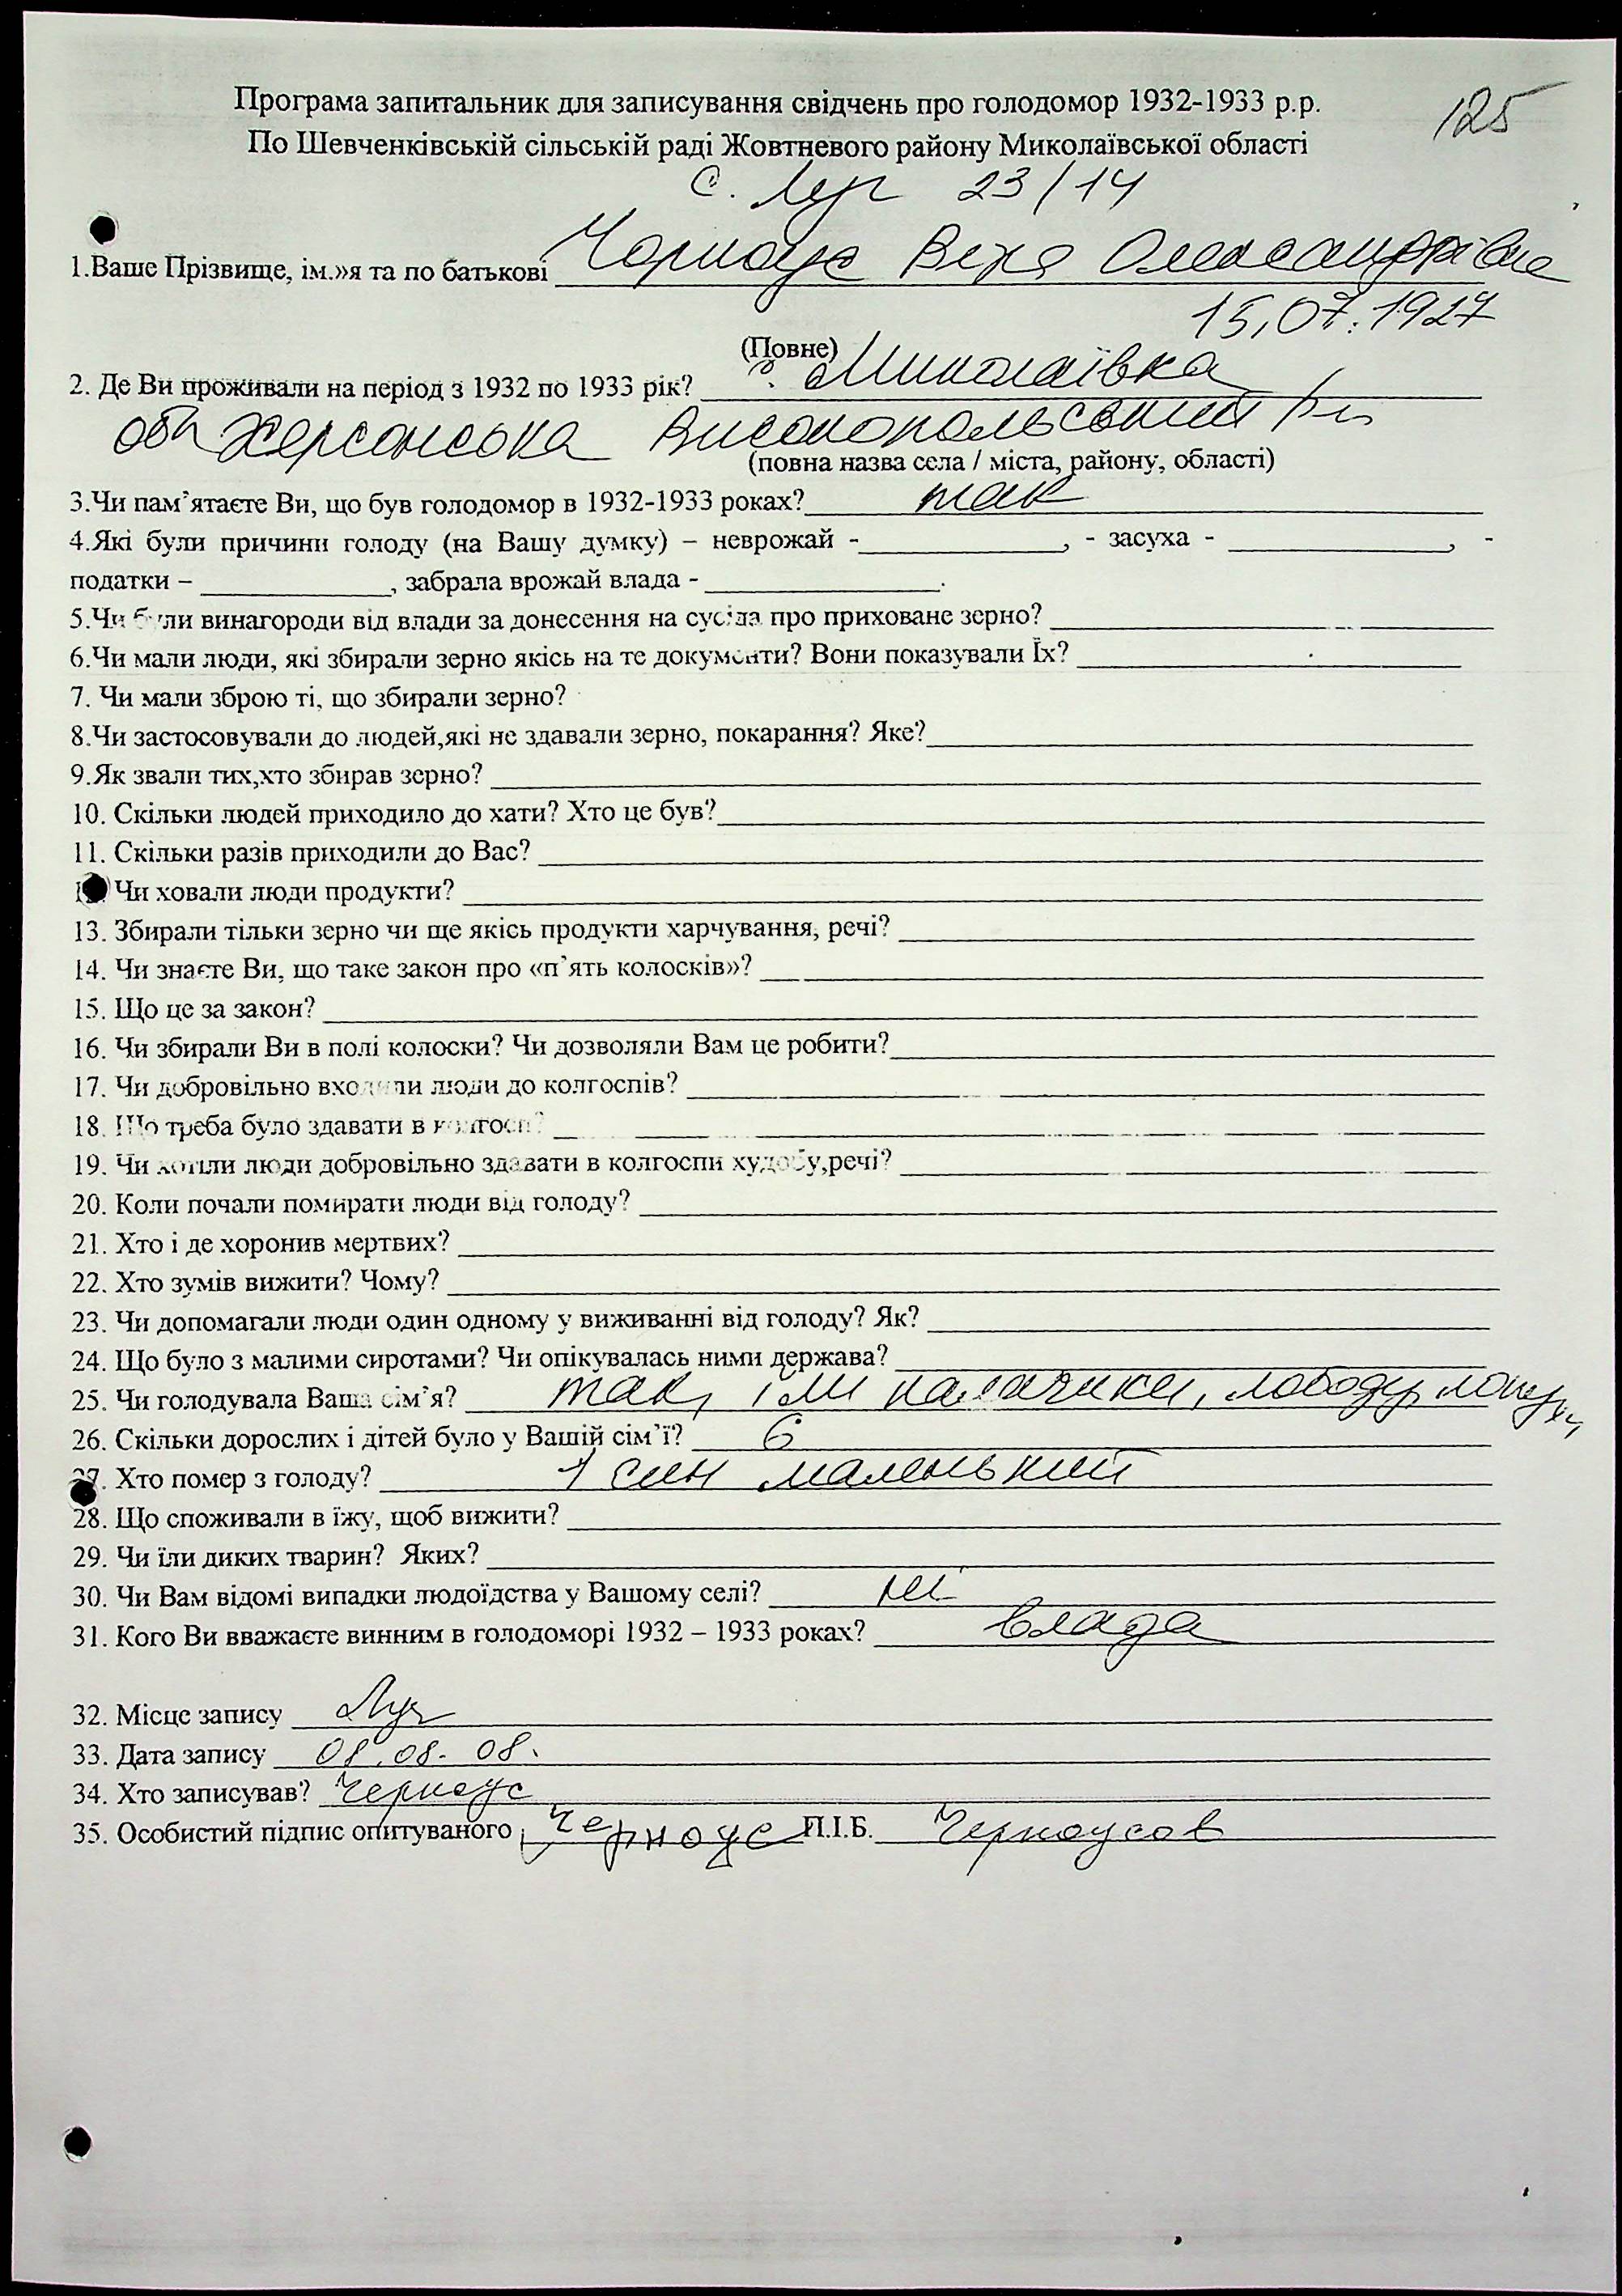 125
Програма запитальник для записування свідчень про голодомор 1932-1933 р.р.
По Шевченківській сільській раді Жовтневого району Миколаївської області
с. Луч 23/14
1.Ваше Прізвище, ім.»я та по батькові Чорноус Віра Олександрівна
15.07.1927
(Повне)
2. Де Ви проживали на період з 1932 по 1933 рік? с. Миколаївка
обл Херсонська Високопольський р-н
(повна назва села / міста, району, області)
3.Чи пам’ятаєте Ви, що був голодомор в 1932-1933 роках? так
4.Які були причини голоду (на Вашу думку) – неврожай -____________, - засуха - ____________, -
податки – ____________, забрала врожай влада - ____________.
5.Чи були винагороди від влади за донесення на сусіда про приховане зерно?
6.Чи мали люди, які збирали зерно якісь на те документи? Вони показували Їх?
7. Чи мали зброю ті, що збирали зерно?
8.Чи застосовували до людей,які не здавали зерно, покарання? Яке?
9.Як звали тих,хто збирав зерно?
10. Скільки людей приходило до хати? Хто це був?
11. Скільки разів приходили до Вас?
12. Чи ховали люди продукти?
13. Збирали тільки зерно чи ще якісь продукти харчування, речі?
14. Чи знаєте Ви, що таке закон про «п’ять колосків»?
15. Що це за закон?
16. Чи збирали Ви в полі колоски? Чи дозволяли Вам це робити?
17. Чи добровільно входили люди до колгоспів?
18. Що треба було здавати в колгосп?
19. Чи хотіли люди добровільно здавати в колгоспи худобу,речі?
20. Коли почали помирати люди від голоду?
21. Хто і де хоронив мертвих?
22. Хто зумів вижити? Чому?
23. Чи допомагали люди один одному у виживанні від голоду? Як?
24. Що було з малими сиротами? Чи опікувалась ними держава?
25. Чи голодувала Ваша сім’я? так, їли калачики, лободу,
26. Скільки дорослих і дітей було у Вашій сім’ї? 6
27. Хто помер з голоду? 1 син маленький
28. Що споживали в їжу, щоб вижити?
29. Чи їли диких тварин? Яких?
30. Чи Вам відомі випадки людоїдства у Вашому селі? ні
31. Кого Ви вважаєте винним в голодоморі 1932 – 1933 роках? влада
32. Місце запису Луч
33. Дата запису 08.08.08.
34. Хто записував? Черноус
35. Особистий підпис опитуваного Черноус П.І.Б. Черноусов